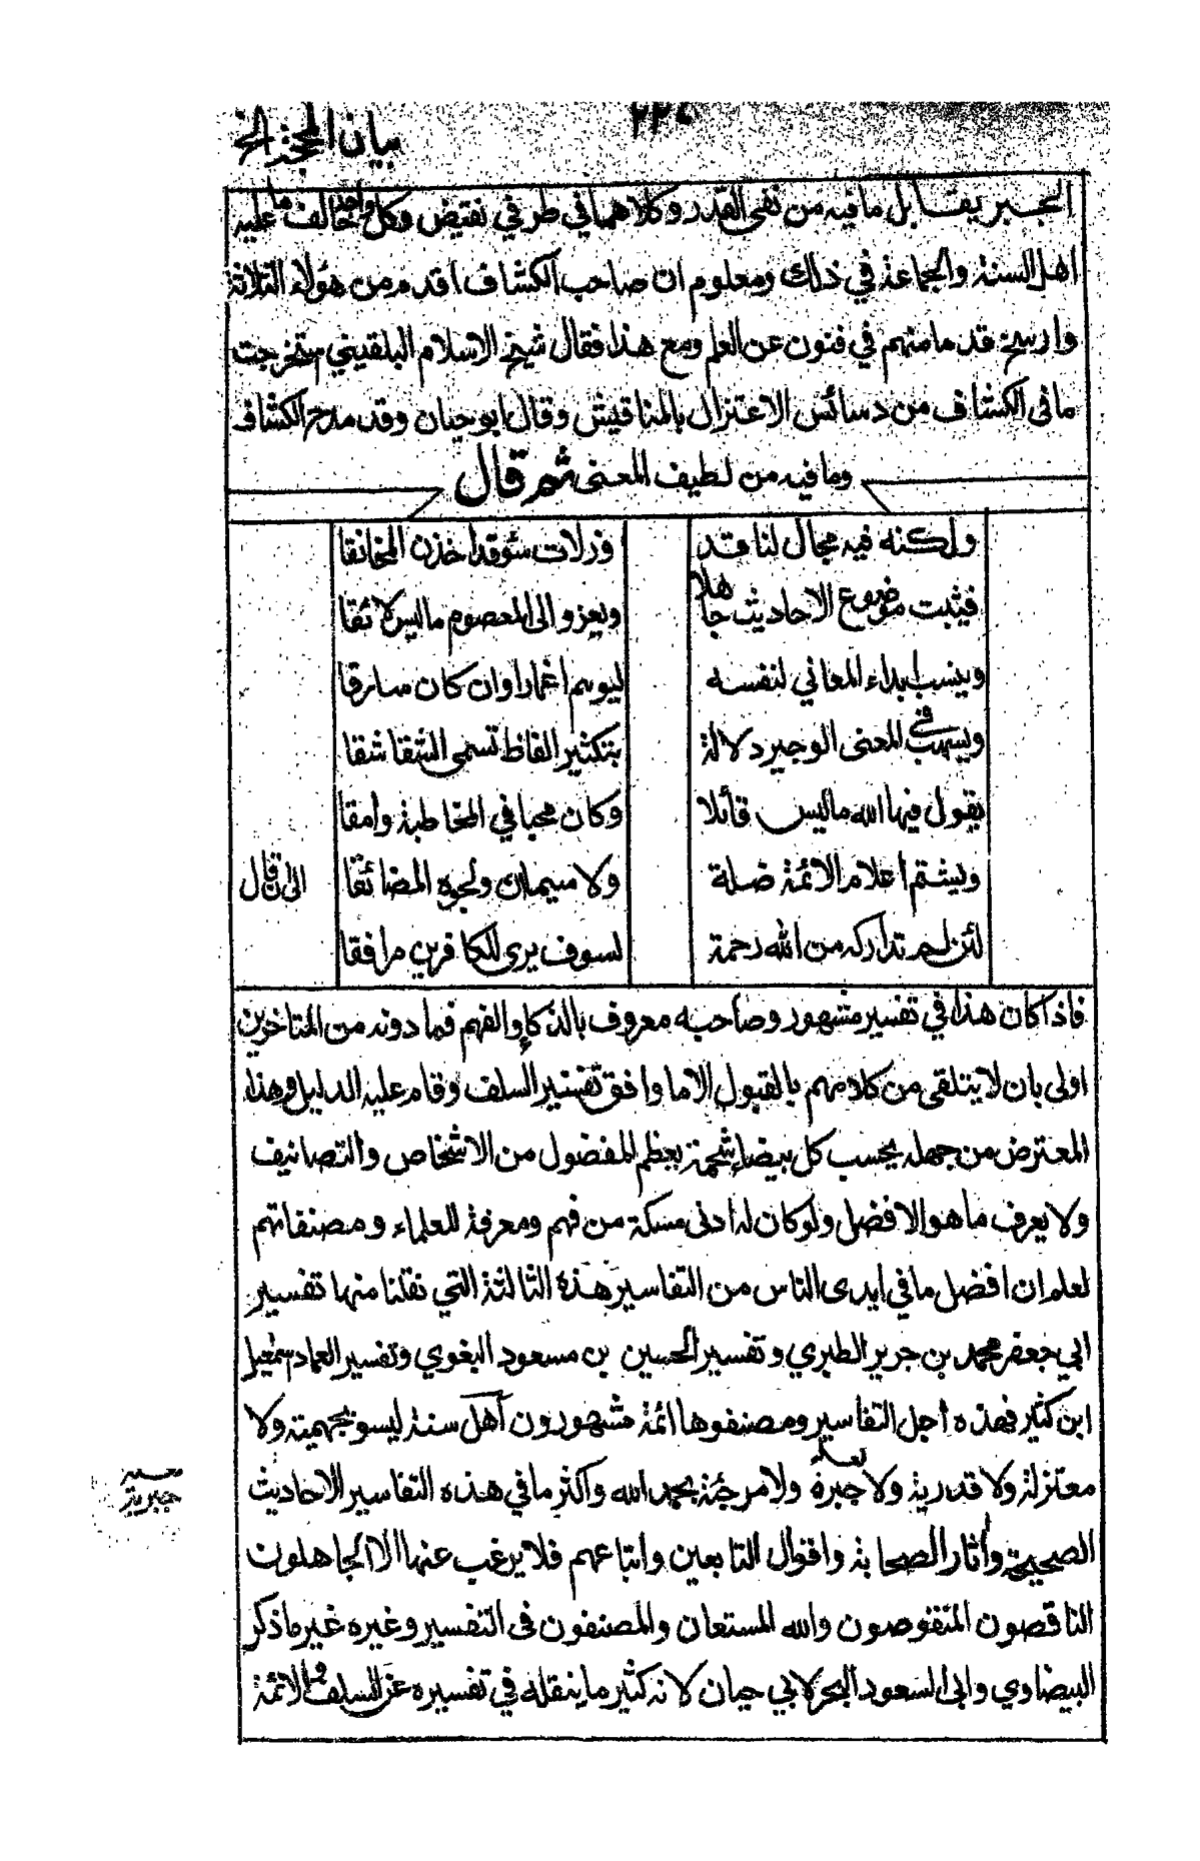 ٢٢٠
بيان المحجة الخ
الجبر يقابل ما فيه من نفي القدر وكلاهما في طرفي نقيض وكل واحد خالف ما عليه
اهل السنة والجماعة في ذلك ومعلوم ان صاحب الكشاف اقدم من هؤلاء الثلاثة
وارسخ قدما منهم في فنون من العلم ومع هذا فقال شيخ الاسلام البلقيني استخرجت
ما في الكشاف من دسائس الاعتزال بالمناقيش وقال ابو حيان وقد مدح الكشاف
وما فيه من لطيف المعنى ثم قال
ولكنه فيه مجال لناقد وزلات سوء قد اخذن المخانقا
فيثبت موضوع الاحاديث جاهلا ويعزو الى المعصوم ما ليس لائقا
وينسب ابداء المعاني لنفسه ليوهم اغمارا وان كان سارقا
ويسهب في المعنى الوجيز دلالة بتكثير الفاظ تسمى الشقاشقا
يقول فيها الله ما ليس قائلا وكان محبا في المخاطبة وامقا
ويشتم اعلام الائمة ضلة ولا سيما ان ولجوه المضائقا الى ان قال
لئن لم تداركه من الله رحمة لسوف يرى للكافرين مرافقا
فاذا كان هذا في تفسير مشهور وصاحبه معروف بالذكاء والفهم فما دونه من المتاخرين
اولى بان لا يتلقى من كلامهم بالقبول الا ما وافق تفسير السلف وقام عليه الدليل وهذا
المعترض من جهله يحسب كل بيضاء شحمة يعظم المفضول من الاشخاص والتصانيف
ولا يعرف ما هو الافضل ولو كان له ادنى مسكة من فهم ومعرفة للعلماء ومصنفاتهم
لعلم ان افضل ما في ايدى الناس من التفاسير هذه الثالثة التي نقلنا منها تفسير
ابي جعفر محمد بن جرير الطبري وتفسير الحسين بن مسعود البغوي وتفسير العماد اسمعيل
ابن كثير فهذه اجل التفاسير ومصنفوها ائمة مشهورون أهل سنة ليسو بجهمية ولا
معتزلة ولا قدرية ولا جبرة ولا مرجئة بحمد الله واكثر ما في هذه التفاسير الاحاديث
لعله
جبرية
الصحيحة وأثار الصحابة واقوال التابعين واتباعهم فلا يرغب عنها الا الجاهلون
الناقصون المنقوصون والله المستعان والمصنفون فى التفسير وغيره غير ما ذكر
البيضاوي وابى السعود البحر لابي حيان لانه كثير ما ينقله في تفسيره عن السلف والائمة